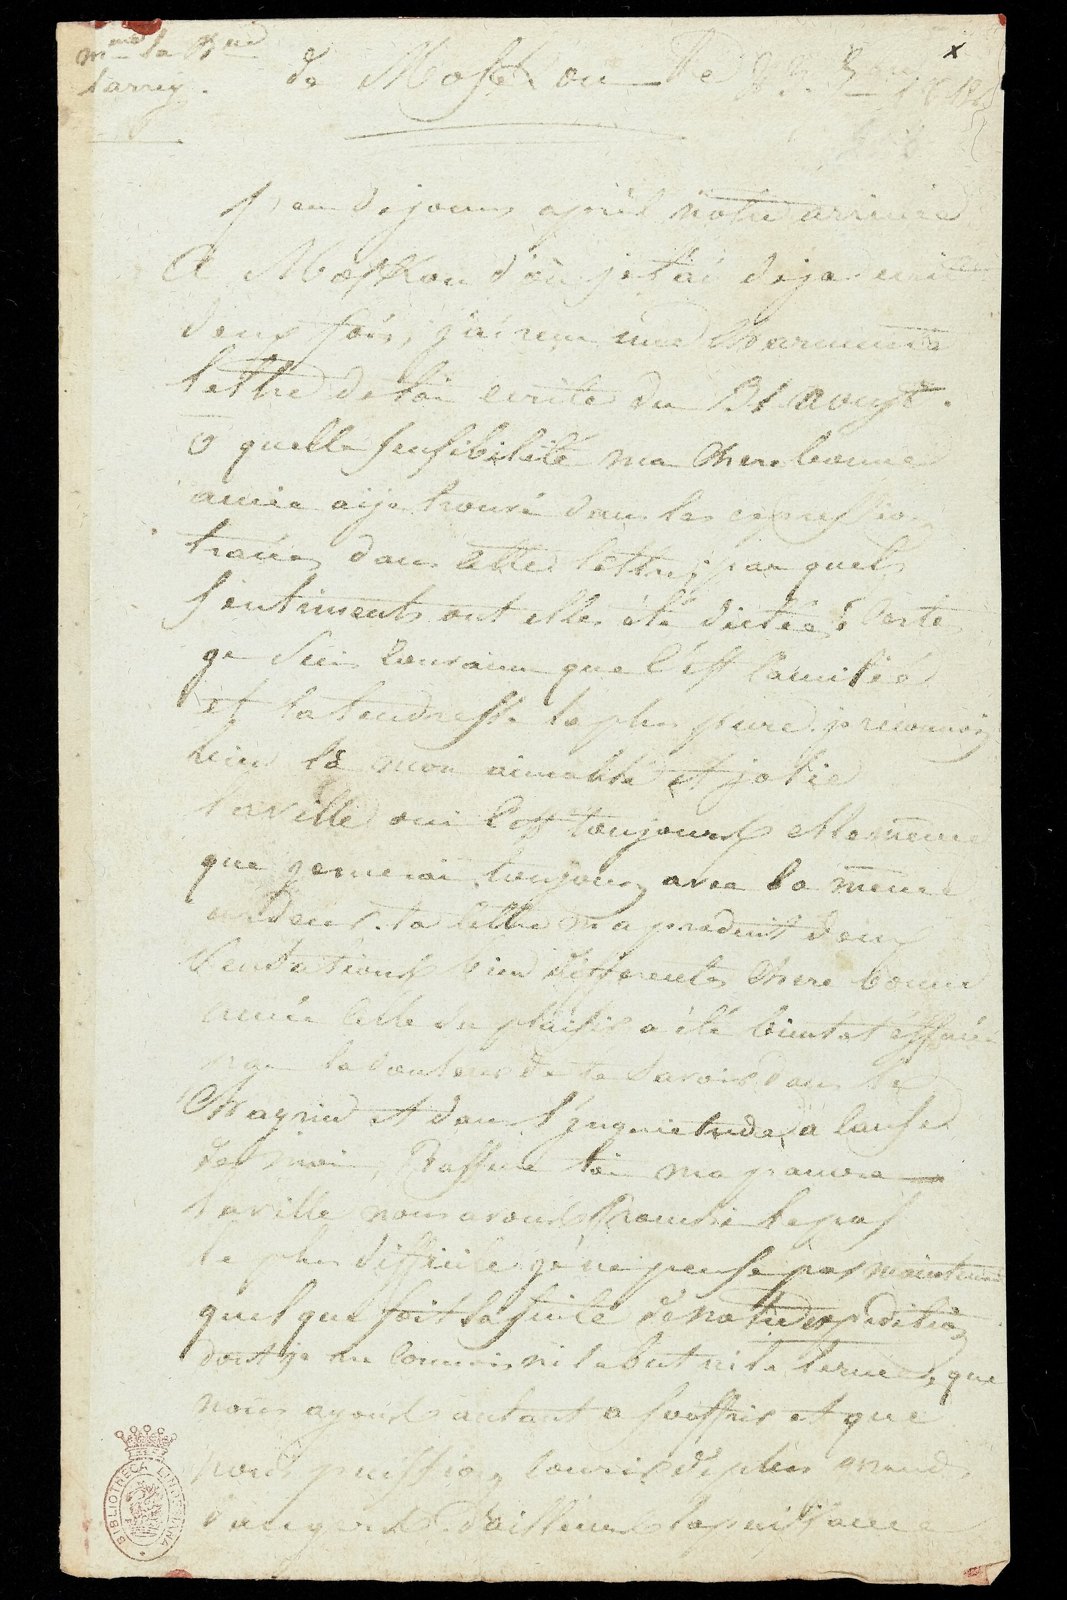 m.me la B.ne
Larrey.
de Moskou le
x
peu de jours après notre arrivée
A Moskou d'où je t'ai deja ecrit
deux fois, j'ai reçu une charmante
lettre de toi ecrite du 31 aoust.
O quelle sensibilité ma chere bonne
amie ai je trouvé dans les expressions
tracées dans cette lettre; par quels
sentiments ont elles été dictées? Certe
je suis convaincu que c'est l'amitié
et la tendresse la plus pure. je reconnois
bien là mon aimable et jolie
Laville oui c'est toujours elle même
que j'aimerai toujours avec la même
ardeur. ta lettre m'a produit deux
sensations bien differentes chere bonne
amie celle du plaisir a été bientot éffacée
par la douleur de te savoir dans le
Chagrin et dans l'inquietude à cause
de moi, Rassure toi ma pauvre
Laville nous avons franchi le pas
le plus difficile je ne pense pas maintenant
quel que soit la suite de notre expedition
dont je ne connois ni le but ni le terme, que
nous ayons autant a souffrir et que
nous puissions courir de plus grands
dangers. D'ailleurs la puissance
BIBLIOTHECA LINDESIANA